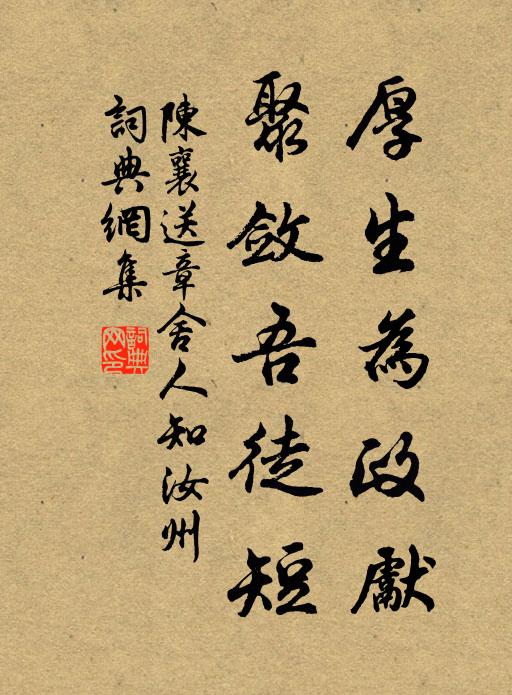 厚生為政獻
聚斂吾徒短
陳襄送章舍人知汝州
詞典網集
詞典网印